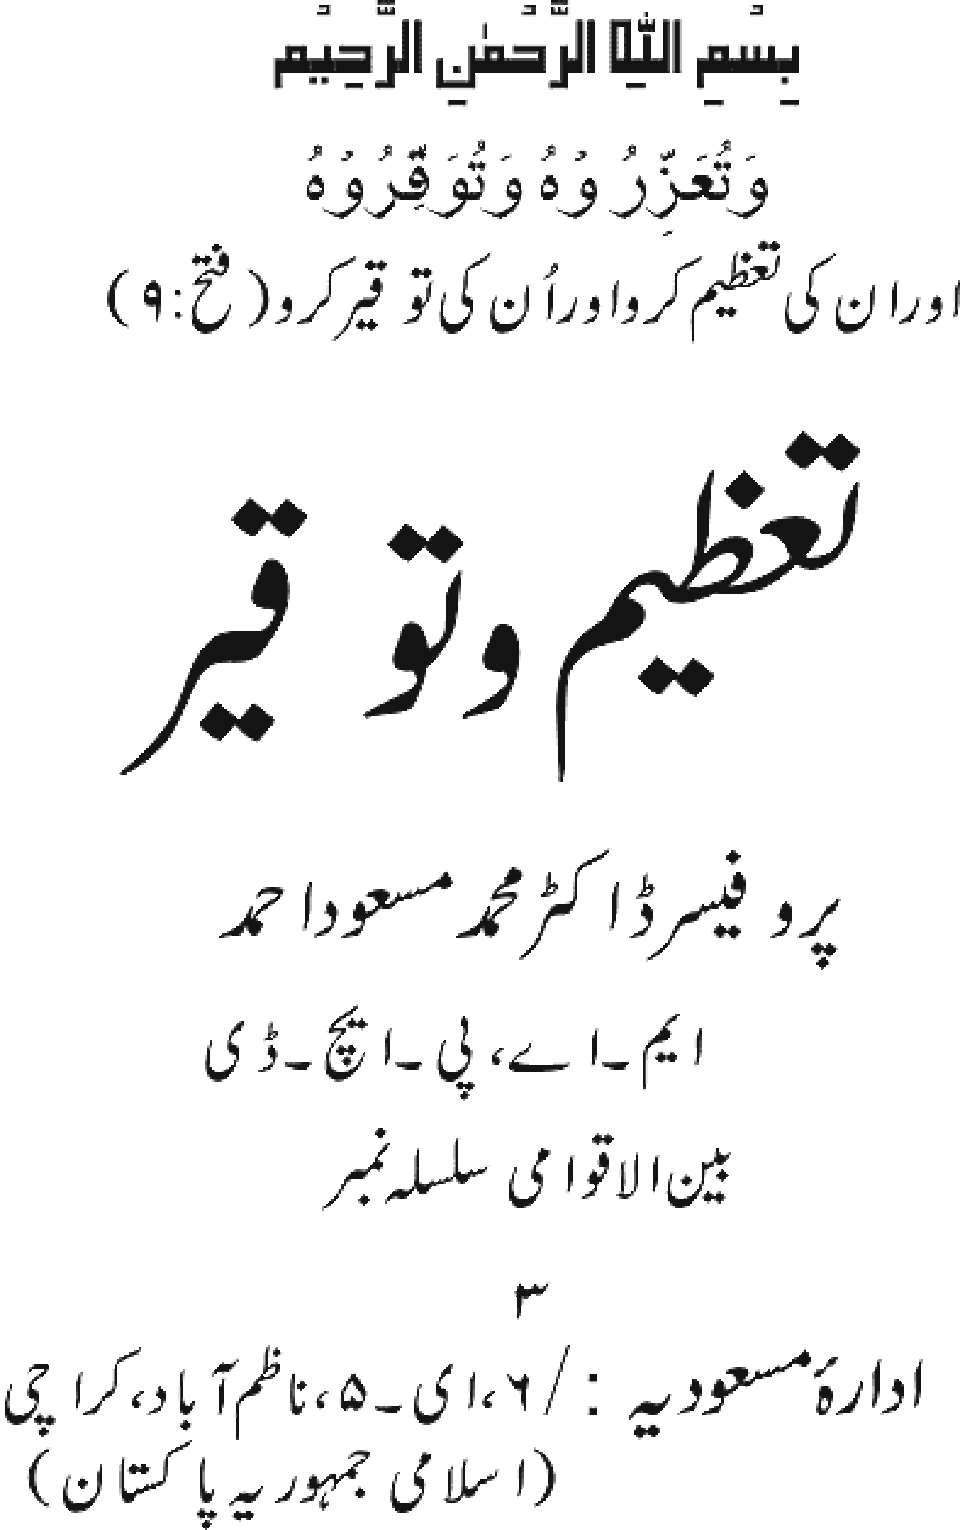 بِسْمِ اللّٰهِ الرَّحْمٰنِ الرَّحِيْمِ
وَتُعَزِّرُوْهُ وَتُوَقِّرُوْهُ
اور ان کی تعظیم کرو اور اُن کی توقیر کرو (فتح:۹)
تعظیم و توقیر
پروفیسر ڈاکٹر محمد مسعود احمد
ایم۔اے، پی۔ایچ۔ڈی
بین الاقوامی سلسلہ نمبر
۳
ادارۂ مسعودیہ : /۶،ای۔۵،ناظم آباد،کراچی
(اسلامی جمہوریہ پاکستان)